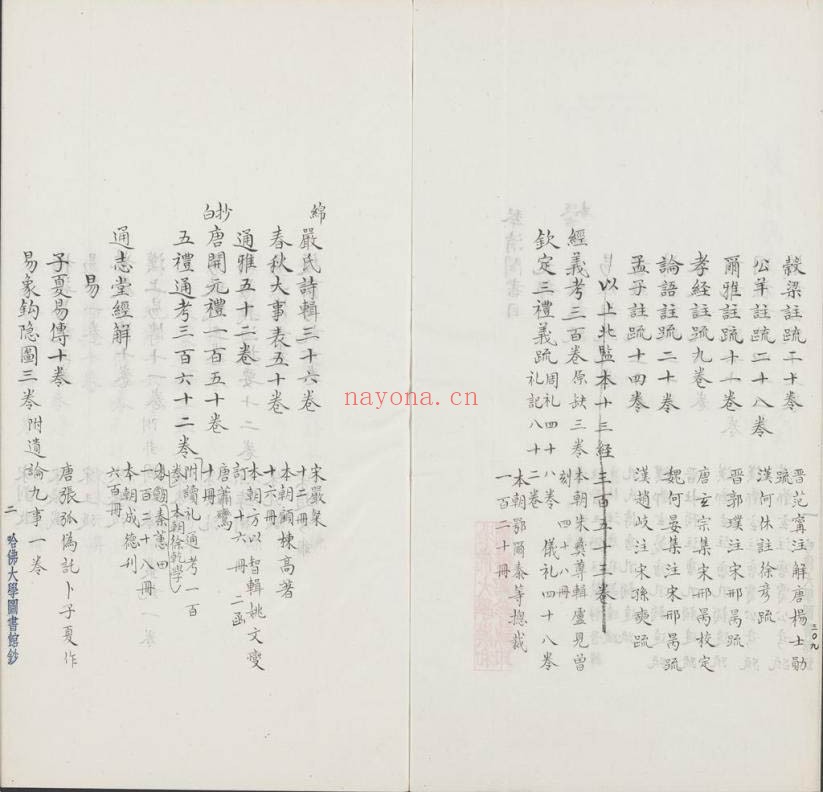 穀梁註疏二十卷 晋范寗注解唐楊士勛疏
公羊註疏二十八卷 漢何休註徐彥疏
爾雅註疏十一卷 晋郭璞注宋邢昺疏
孝経註疏九卷 唐玄宗集宋邢昺校定
論語註疏二十卷 魏何晏集注宋邢昺疏
孟子註疏十四卷 漢趙岐注宋孫奭疏
以上北監本十三経三百五十三卷
經義考三百卷 原缺三卷 本朝朱彝尊輯盧見曾刻 四十八冊
欽定三禮義疏 周礼四十八卷 儀礼四十八卷 礼記八十二卷 本朝鄂爾泰等摠裁 一百二十冊
綿 嚴氏詩輯三十六卷 宋嚴粲 十二冊
春秋大事表五十卷 本朝顧棟高著 十六冊
通雅五十二卷 本朝方以智輯姚文燮訂 十六冊 二函
抄白 唐開元禮一百五十卷 唐蕭嵩 十冊
五禮通考三百六十二卷 附讀礼通考一百 卷 本朝徐乾學 秦蕙田 一百二十八冊
通志堂經解 本朝成德刊 六百冊
易
子夏易傳十卷 唐張弧偽託卜子夏作
易象鈎隐圖三卷 附遺論九事一卷
二
哈佛大學圖書館鈔
二〇九
nayona.cn